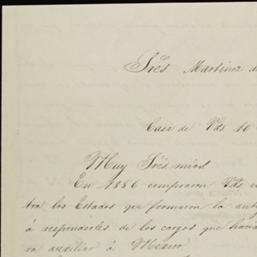 Sres Martinez d
Casa de Vds 10
Muy Sres mios
En 1886 compraron Vds
tra los Estados que formaron la ant
á responderles de los cargos que
ra auxiliar á Mexico